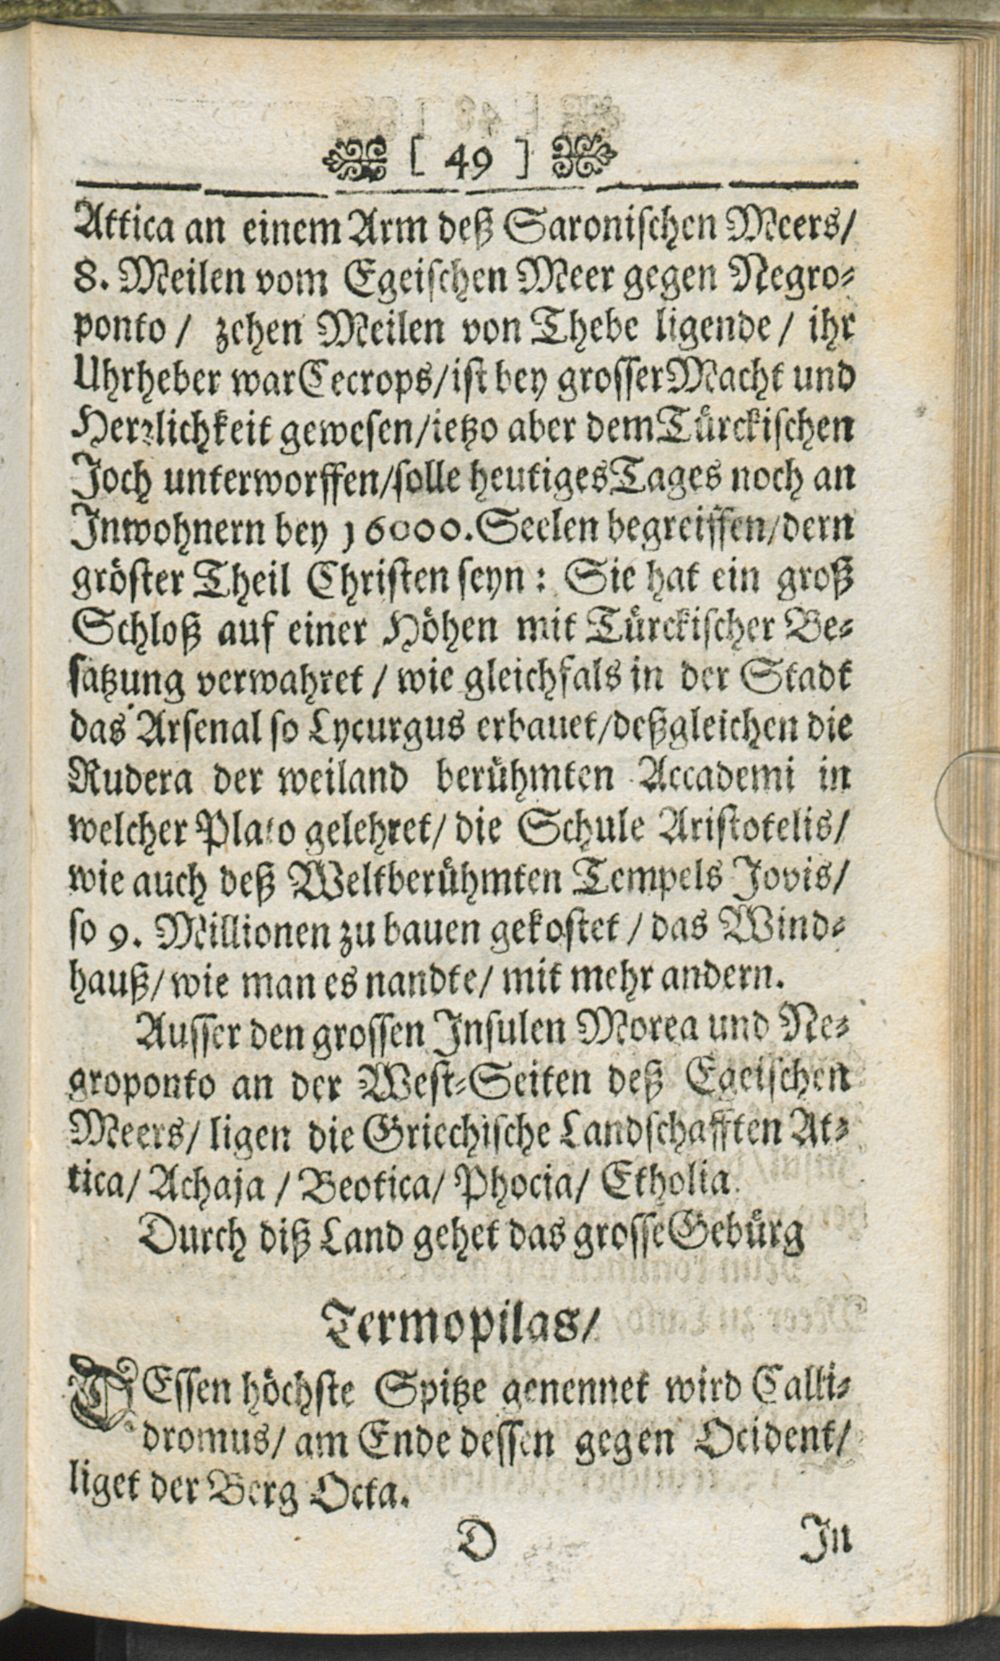 [ 49 ]
Attica an einem Arm deß Saronischen Meers/
8. Meilen vom Egeischen Meer gegen Negro-
ponto / zehen Meilen von Thebe ligende / ihr
Uhrheber war Cecrops/ist bey grosser Macht und
Herrlichkeit gewesen/ietzo aber dem Türckischen
Joch unterworffen/solle heutiges Tages noch an
Inwohnern bey 16000. Seelen begreiffen/dern
gröster Theil Christen seyn: Sie hat ein groß
Schloß auf einer Höhen mit Türckischer Be-
satzung verwahret / wie gleichfals in der Stadt
das Arsenal so Lycurgus erbauet/deßgleichen die
Rudera der weiland berühmten Accademi in
welcher Plato gelehret/ die Schule Aristotelis/
wie auch deß Weltberühmten Tempels Jovis/
so 9. Millionen zu bauen gekostet / das Wind-
hauß/ wie man es nandte/ mit mehr andern.
Ausser den grossen Insulen Morea und Ne-
groponto an der West-Seiten deß Egeischen
Meers/ ligen die Griechische Landschafften At-
tica/ Achaja / Beotica/ Phocia/ Etholia.
Durch diß Land gehet das grosse Gebürg
Termopilas/
DEssen höchste Spitze genennet wird Calli-
dromus/ am Ende dessen gegen Ocident/
liget der Berg Octa.
D In